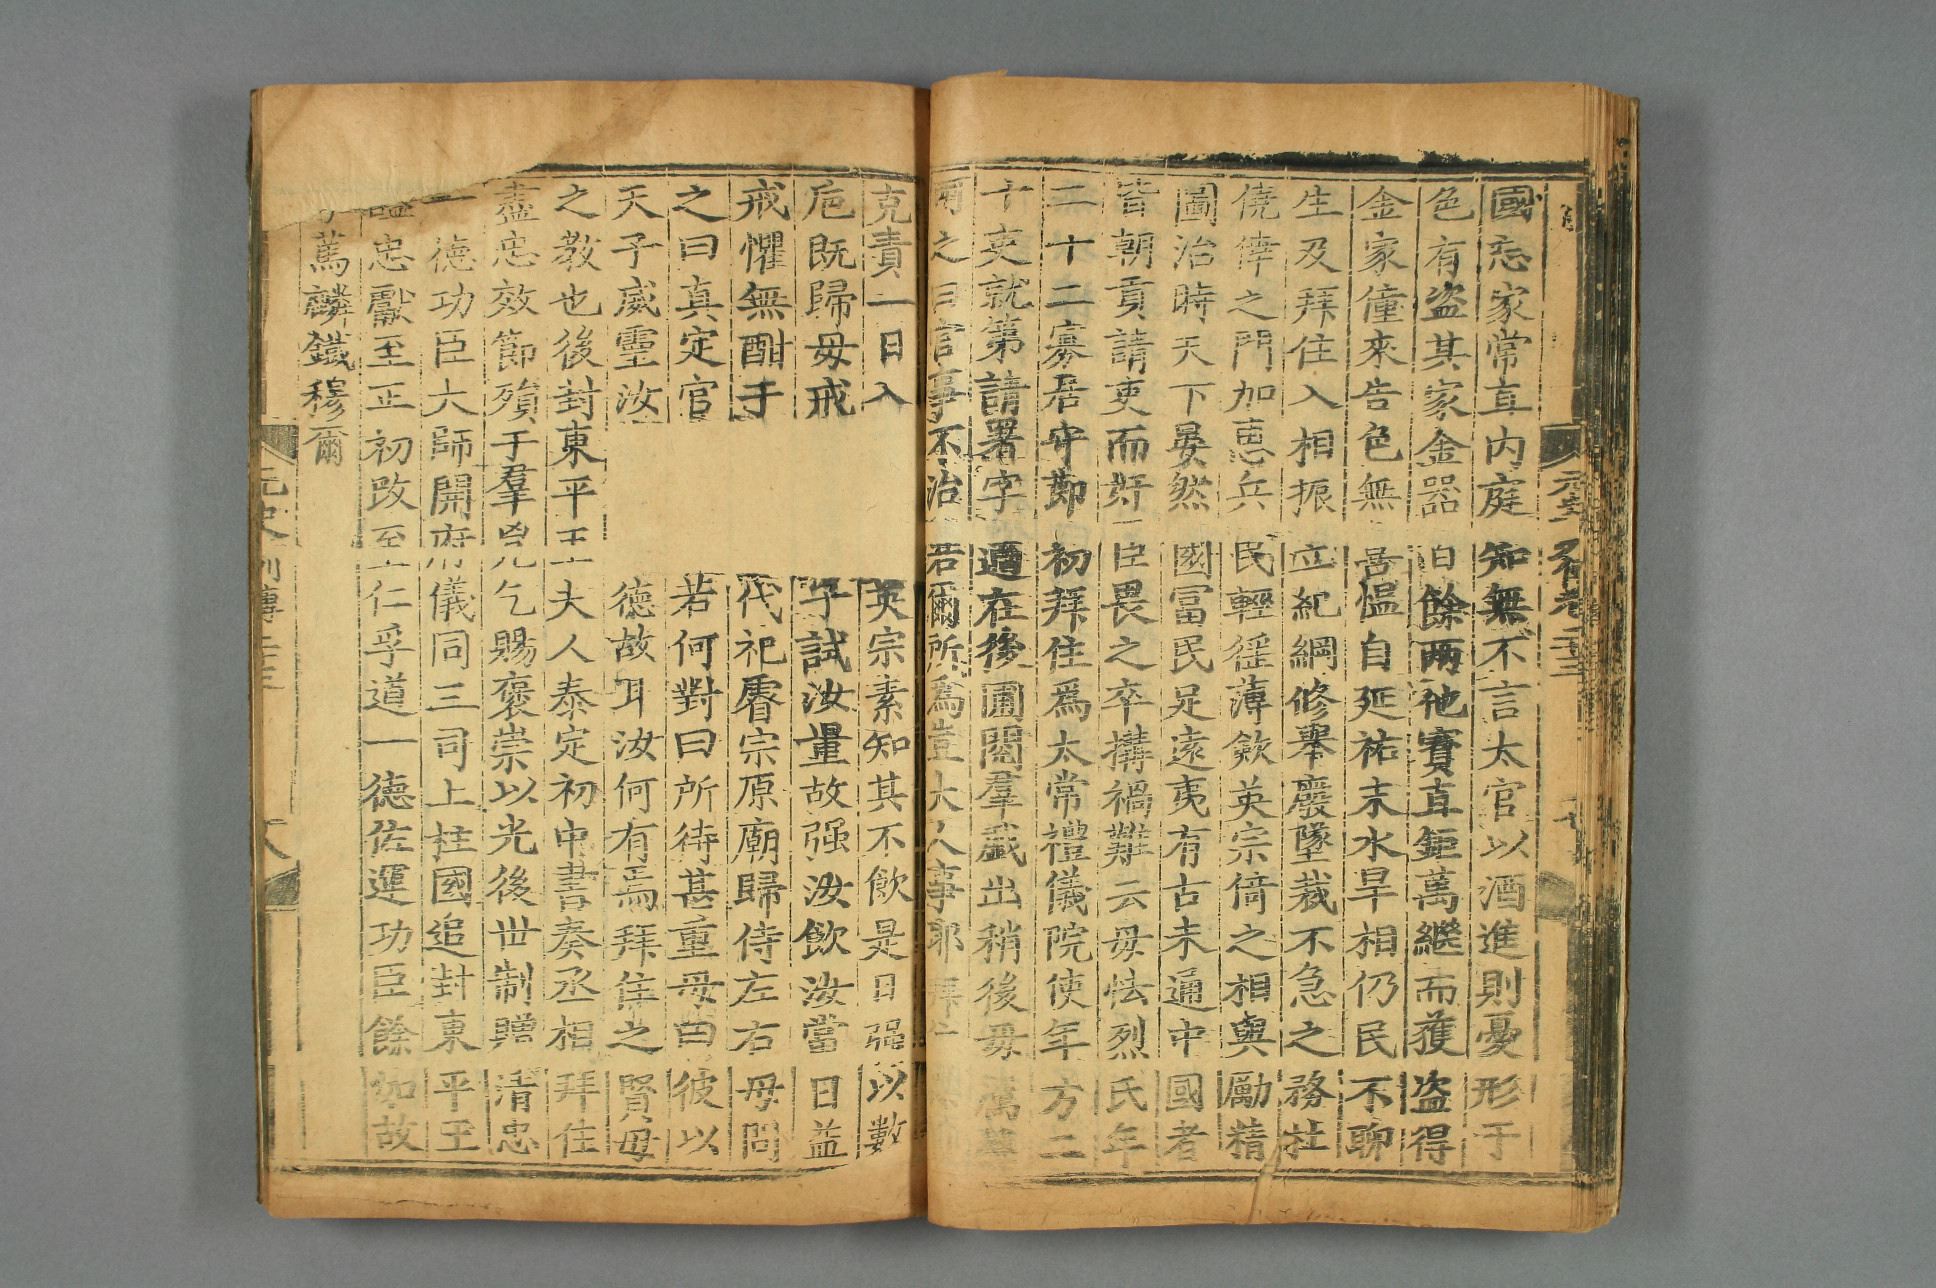 國忘家常直内庭知無不言太官以酒進則憂形于
色有盗其家金器百餘兩他寶直鉅萬繼而獲盗得
金家僮來告色無喜愠自延祐末水旱相仍民不聊
生及拜住入相振立紀綱修舉廢墜裁不急之務杜
僥倖之門加惠兵民輕徭薄斂英宗倚之相與勵精
圖治時天下晏然國富民足遠夷有古未通中國者
皆朝貢請吏而奸臣畏之卒搆禍難云毋怯烈氏年
二十二寡居守節初拜住爲太常禮儀院使年方二
十吏就第請署字適在後圃閲羣戲出稍後毋厲聲
爾之曰官事不治若爾所爲豈大人事耶拜住
克責一日入英宗素知其不飲是日强以數
巵既歸毋戒子試汝量故强汝飲汝當日益
戒懼無酣于代祀睿宗原廟歸侍左右毋問
之曰真定官若何對曰所待甚重毋曰彼以
天子威靈汝德故耳汝何有焉拜住之賢毋
之教也後封東平王夫人泰定初中書奏丞相拜住
盡忠效節殞于羣兇乞賜褒崇以光後世制贈清忠
一德功臣太師開府儀同三司上柱國追封東平王
謚忠獻至正初改至仁孚道一德佐運功臣餘如故
篤麟鐵穆爾
元史列傳二十三
八